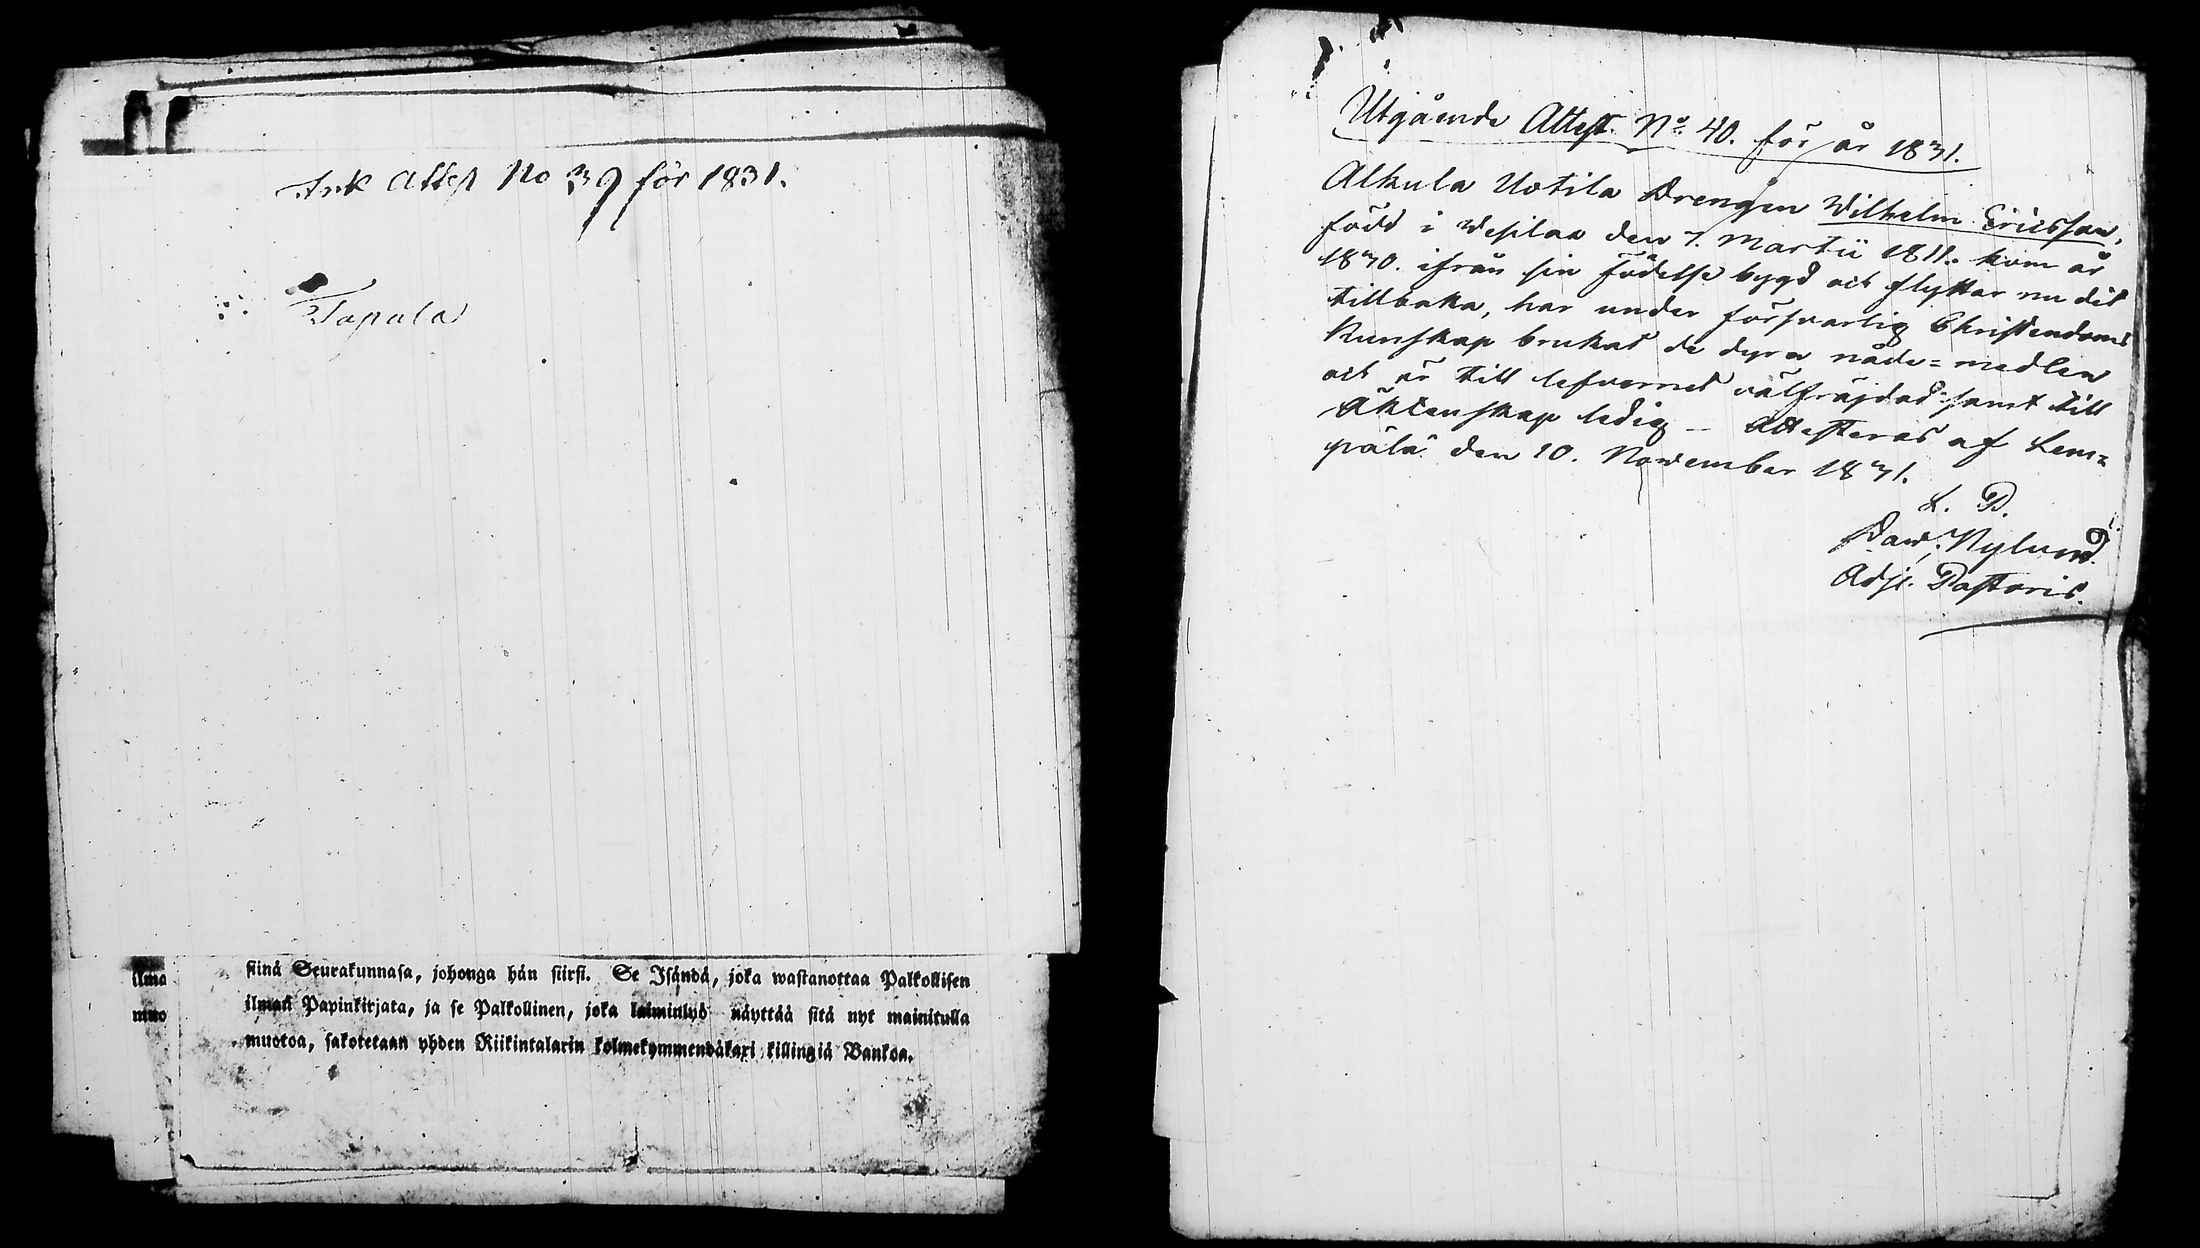 Ink Attest No 39 för 1831.
Tapala
ilma
muo
siinä Seurakunnasa, johonga hän siirsi. Se Isändä, joka wastanottaa Palkollisen
ilman Papinkirjata, ja se Palkollinen, joka laiminlyö näyttää sitä nyt mainitulla
muotoa, sakotetaan yhden Riikintalarin kolmekymmendäkaxi killingiä Bankoa.
Utgående Attest. No. 40. för år 1831.
Alkula Uotila Drengen Wilhelm Ericsson,
född i Wesilax den 7. Martii 1811. kom år
1830. ifrån sin födelse bygd och flyttar nu dit
tillbaka, har under försvarlig Christendoms
kunskap brukat de dyra nåde=medlen
och är till lefvernet välfräjdad samt till
Äktenskap ledig – Attesteras af Lem=
pälä den 10. November 1831.
L. P.
Dav. Nylund.
Adj. Pastoris.